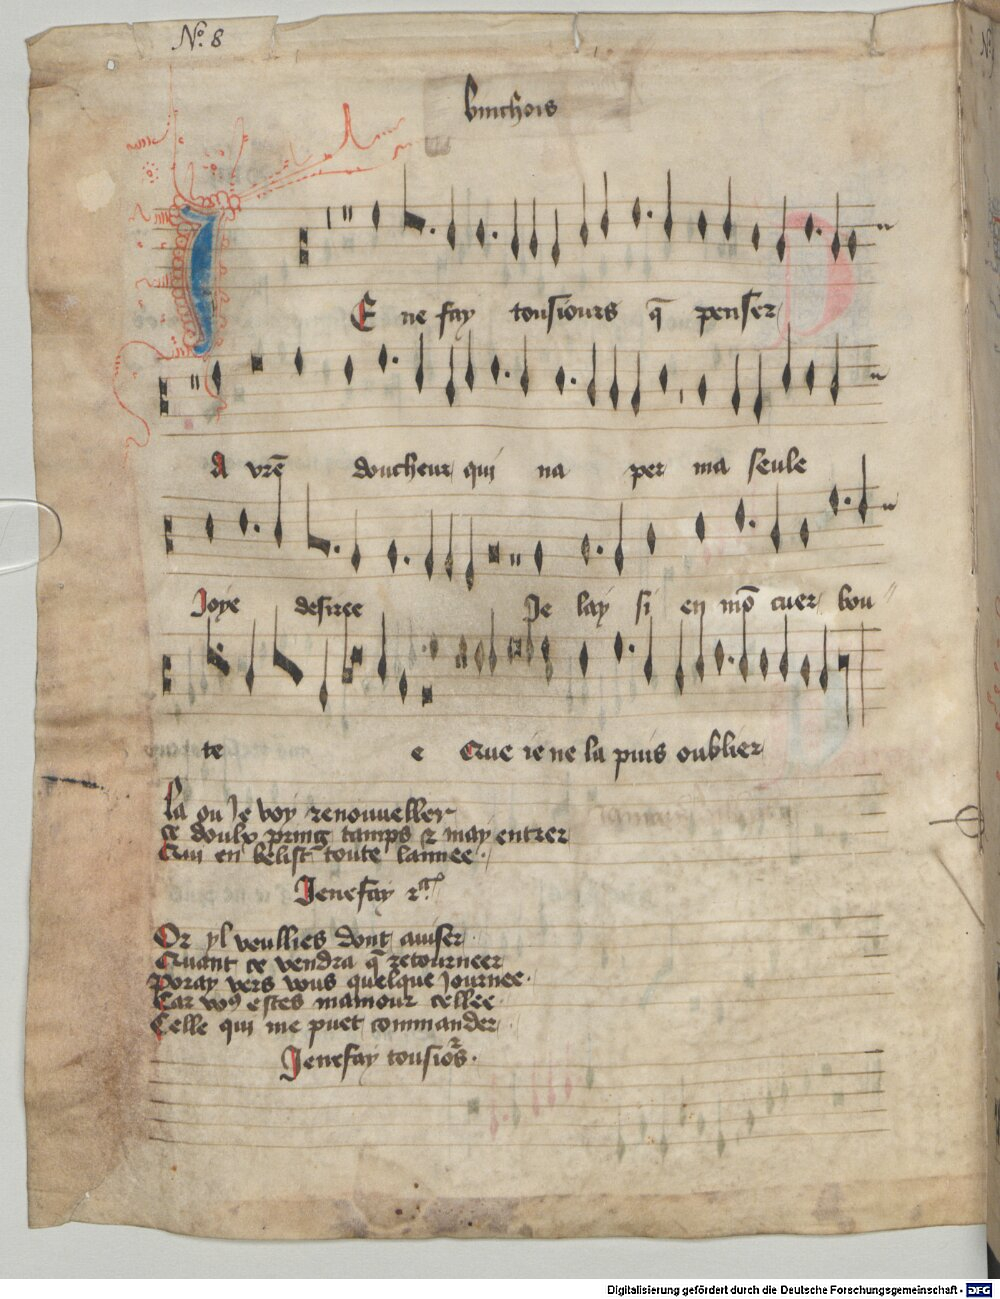 No. 8
binchois
JE ne fay tousiours q̄ penser
A vrē doucheur qui na per ma seule
Joye desiree Je lay si en mō cuer bou
te e Que ie ne la puis oublier
La ou Je voy renouueller
ce doulx pring tamps & may entrer
Qui en belist toute lannee.
Je ne fay
Or yl veullies dont auiser
Quant ce vendra q̄ retourneer
Poray vers vous quelque Journee.
Car vo9 estes mamour cellee.
Celle qui me puet commander
Je ne fay tousiors.
Digitalisierung gefördert durch die Deutsche Forschungsgemeinschaft - DFG